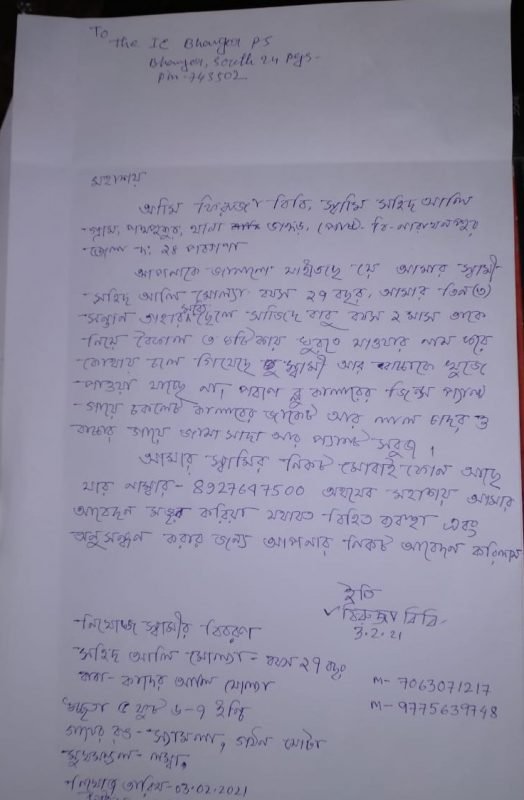 To
The IC Bhangar PS
Bhangar, South 24 Pgs-
Pin-743502
মহাশয়
আমি ফিরুজা বিবি, স্বামি সহিদ আলি
গ্রাম, থানা ভাঙড়, পোষ্ট-
জেলা দ: ২৪ পরগণা
আপনাকে জানানো যাইতেছে যে আমার স্বামী
সহিদ আলি মোল্যা বয়স ২৭ বছর, আমার তিন(৩)
সন্তান তাহার ছেলে সাজিদ বাবু বয়স ২ মাস তাকে
নিয়ে বৈকাল ৩ ঘটিকায় ঘুরতে যাওয়ার নাম করে
কোথায় চলে গিয়েছে স্বামী আর বাচ্চাকে খুজে
পাওয়া যাচ্ছে না, পরণে ব্লু কালারের জিন্স প্যান্ট
গায়ে চকলেট কালারের জ্যাকেট আর লাল চাদর ও
বাচ্চার গায়ে জামা সাদা আর প্যান্ট সবুজ।
আমার স্বামির নিকট মোবাই ফোন আছে
যার নাম্বার- 8927647500 অতএব মহাশয় আমার
আবেদন মঞ্জুর করিয়া যথাযত বিহিত ব্যবস্থা এবং
অনুসন্ধন করার জন্যে আপনার নিকট আবেদন করিলাম
ইতি
ফিরুজা বিবি
3.2.21
নিখোজ স্বামীর বিবরণ
সহিদ আলি মোল্যা- বয়স ২৭ বছর
বাবা- কাদের আলি মোল্যা
m- 7063071217
উচ্চতা ৫ ফুট ৬-৭ ইঞ্চি
m- 9775639748
গায়ের রঙ- শ্যামলা, গঠন মোটা
মুখমন্ডল- লম্বা,
নিখোজ তারিখ-03.02.2021